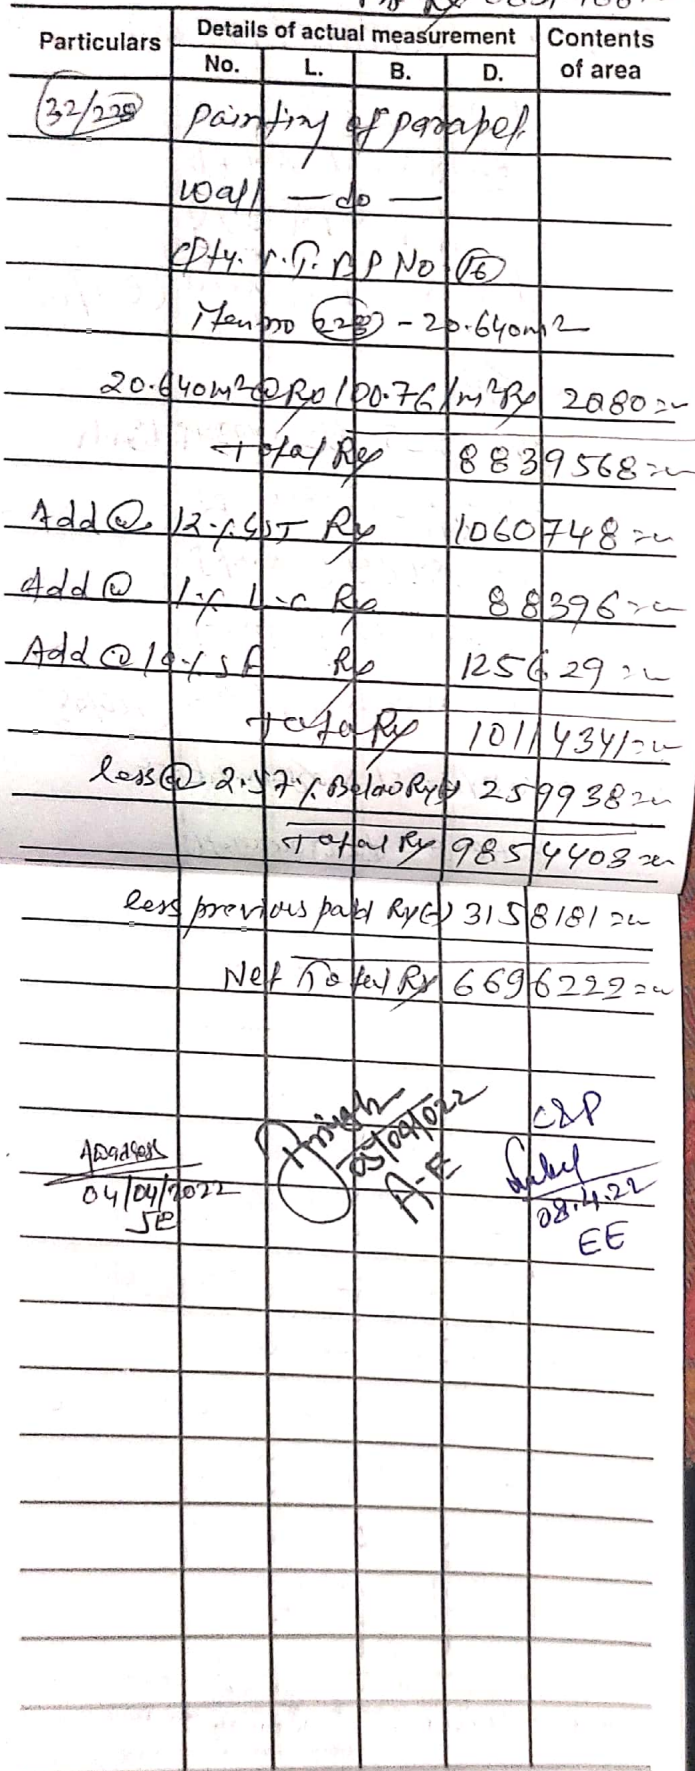 Particulars Details of actual measurement Contents of area
No. L. B. D.
32/228 Painting of parapet
wall — do —
Qty. P No 16
Item no 228 - 20.640m2
20.640m2 @ Rs 100.76/m2 Rs 2080=00
Total Rs 8839568=00
Add @ 12% GST Rs 1060748=00
Add @ 1% L.C Rs 88396=00
Add @ S F Rs 125629=00
Total Rs 10114341=00
less @ 2.57% Below Rs (-) 259938=00
Total Rs 9854403=00
less previous paid Rs (-) 3158181=00
Net Total Rs 6696222=00
04/04/2022
JE
05/04/022
A-E
C&P
08.4.22
EE